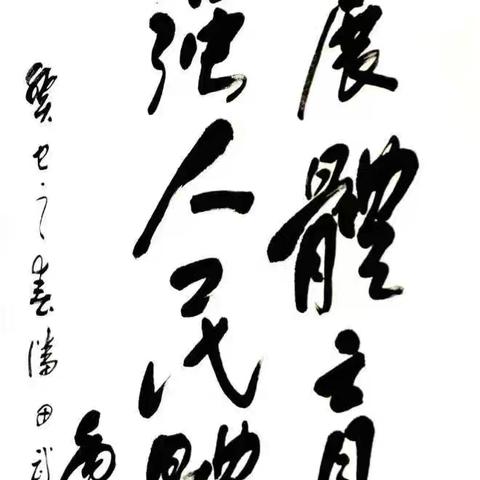 展體育
强人民體
癸巳之春潘田武